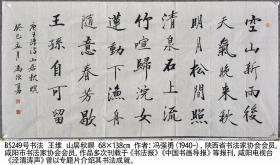 空山新雨後
天氣晚来秋
明月松間照
清泉石上流
竹喧歸浣女
蓮動下漁舟
随意春芳歇
王孫自可留
B5249号书法 王维 山居秋暝 68×138cm 作者:冯强勇(1940-),陕西省书法家协会会员,
咸阳市书法家协会会员,作品多次刊载于《书法报》《中国书画导报》等报刊,咸阳电视台
《泾渭涛声》曾以专题片介绍其书法成就。